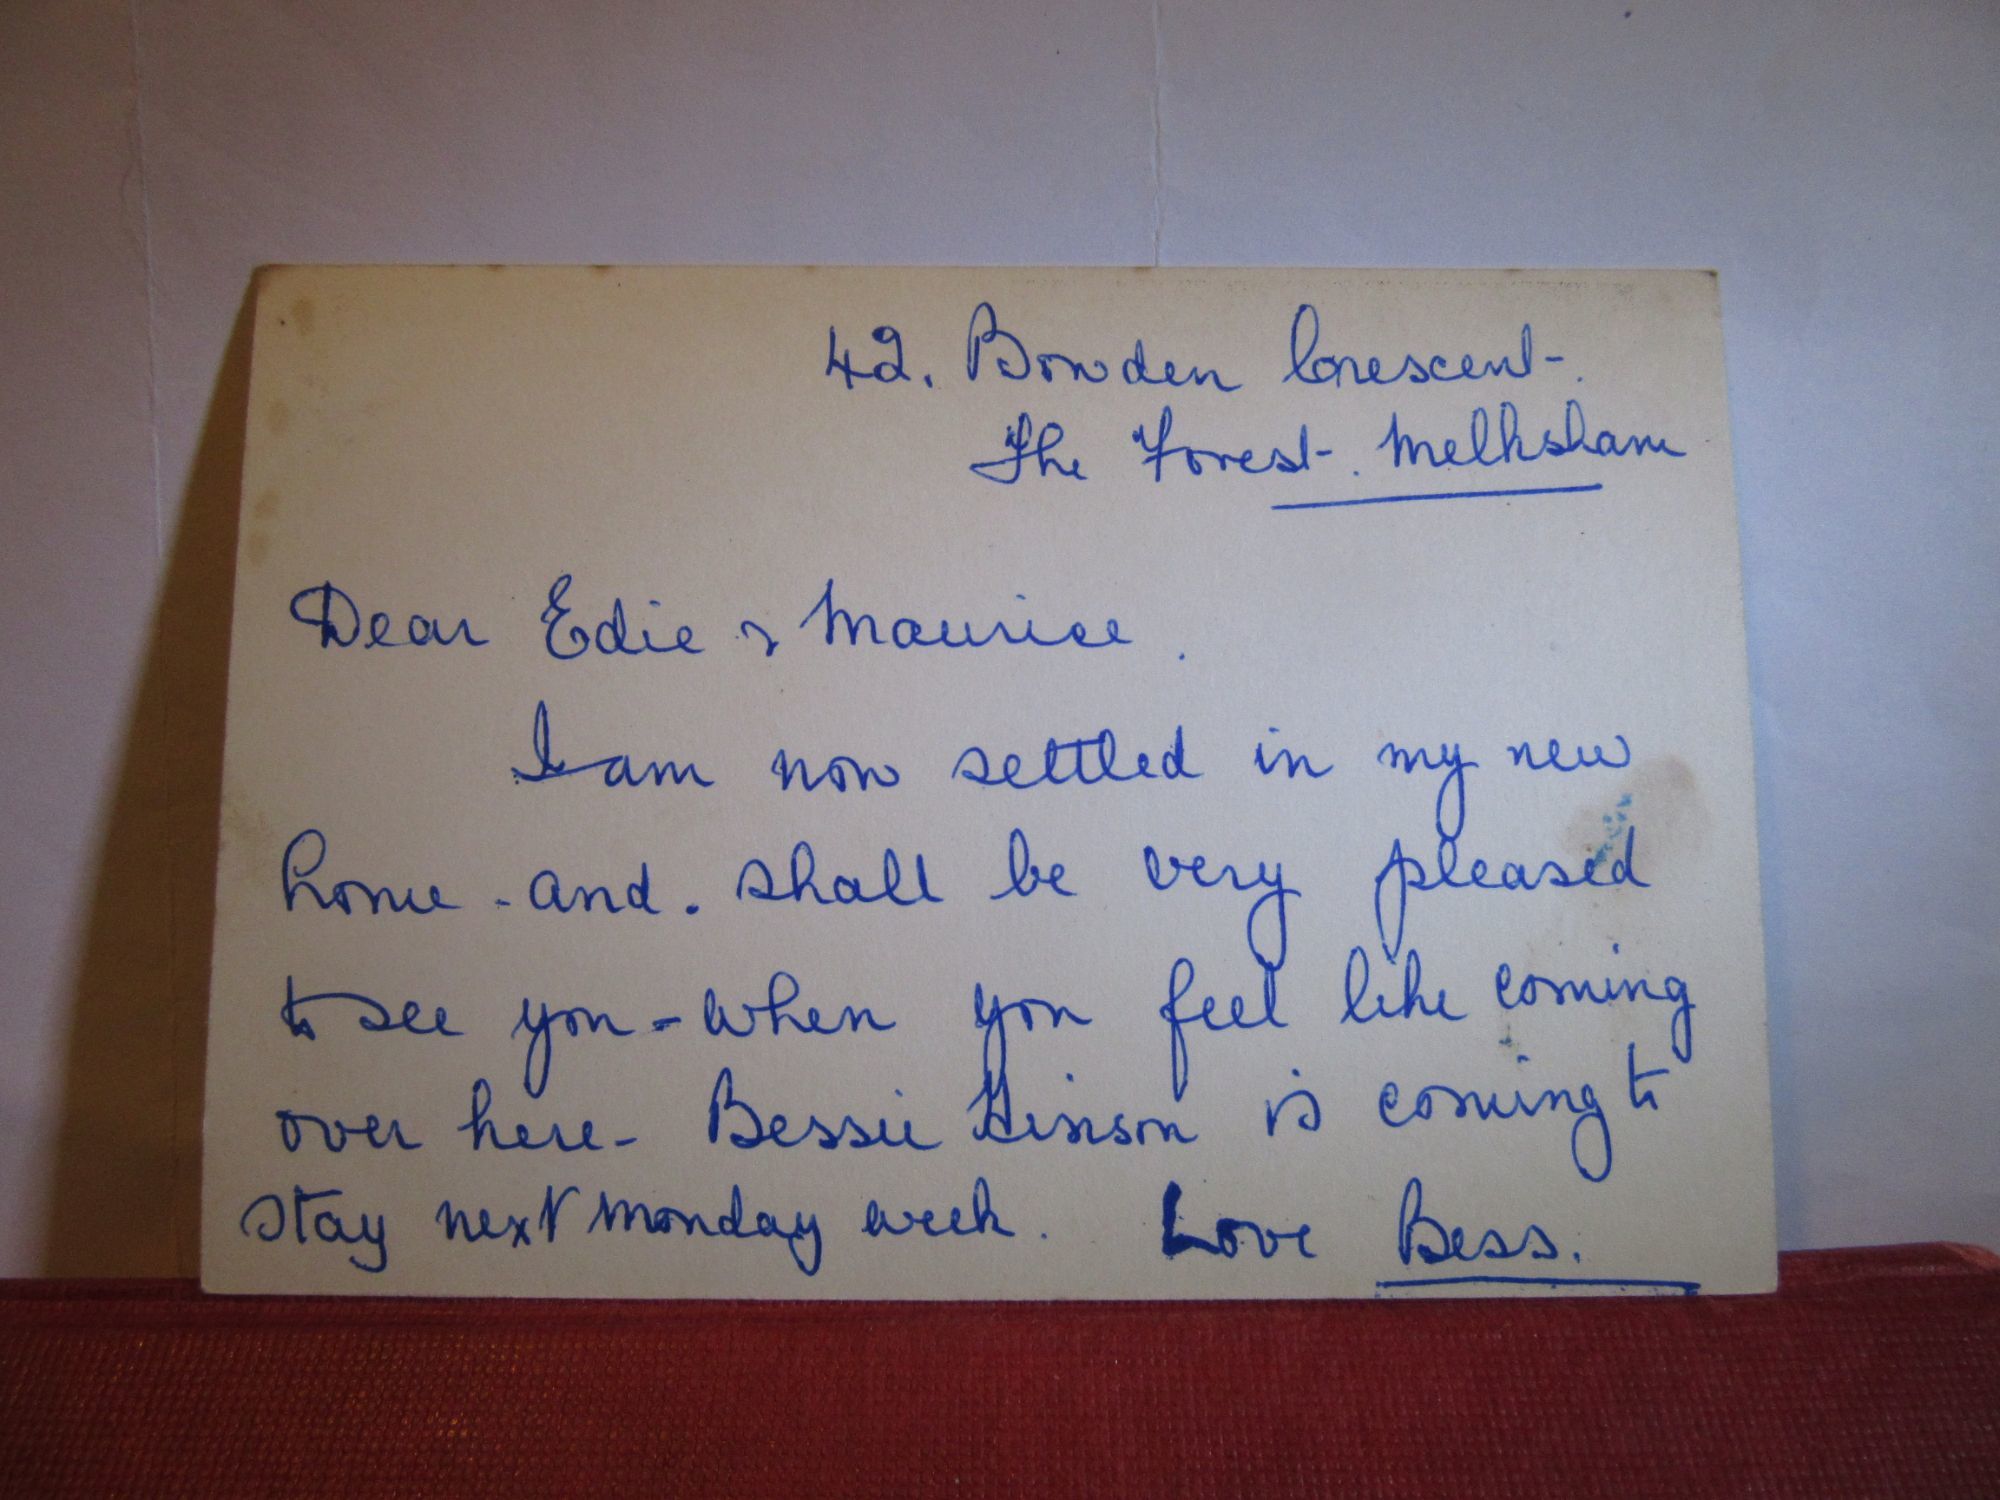 42. Bowden Crescent.
The Forest. Melksham
Dear Edie & Maurice.
I am now settled in my new
home - and. shall be very pleased
to see you - when you feel like coming
over here - Bessie Hinson is coming to
stay next Monday week. Love Bess.